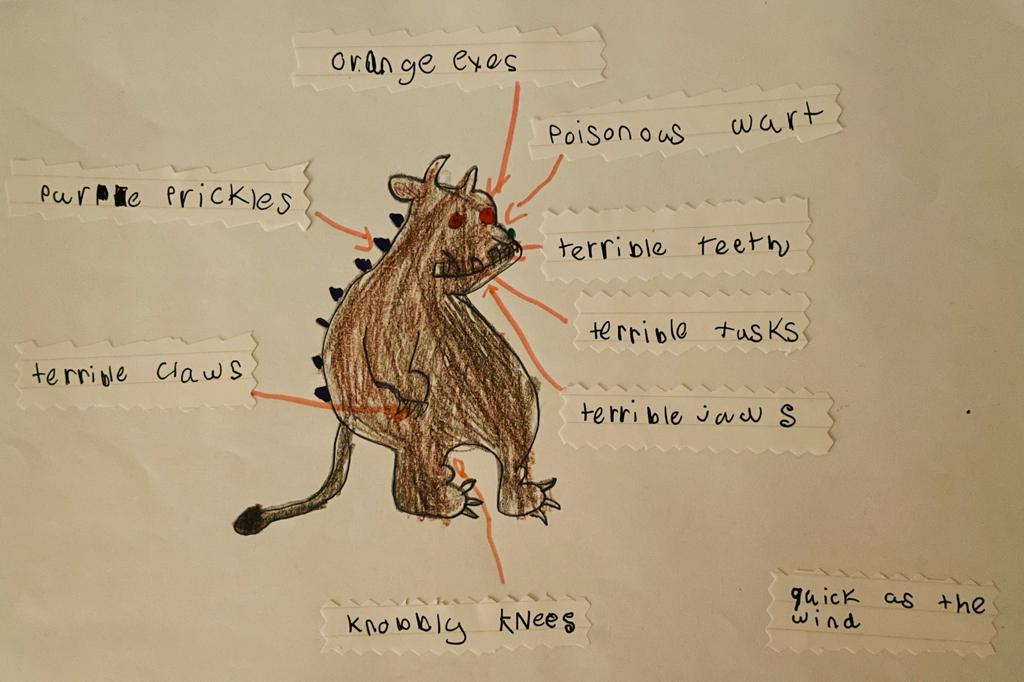 orange eyes
Poisonous wart
Purple Prickles
terrible teeth
terrible tusks
terrible claws
terrible jaws
knobbly knees
quick as the
wind